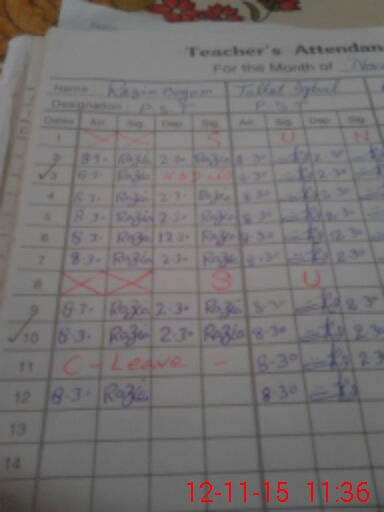 Teacher's Attendan
For the Month of Nov
Name: Razia Begum Tallat Iqbal
Designation: P.S.T P.S.T
Dates Arr. Sig. Dep. Sig. Arr. Sig. Dep. Sig.
1 S U N
2 8.30 Razia 2.30 Razia 8.30 2.30
3 8.30 Razia 8.30 2.30
4 8.30 Razia 2.30 Razia 8.30 2.30
5 8.30 Razia 2.30 Razia 8.30 2.30
6 8.30 Razia 12.30 Razia 8.30 12.30
7 8.30 Razia 2.30 Razia 8.30 2.30
8 S U
9 8.30 Razia 2.30 Razia 8.30 2.30
10 8.30 Razia 2.30 Razia 8.30 2.30
11 C - Leave - 8.30 2.30
12 8.30 Razia 8.30
13
14
12-11-15 11:36